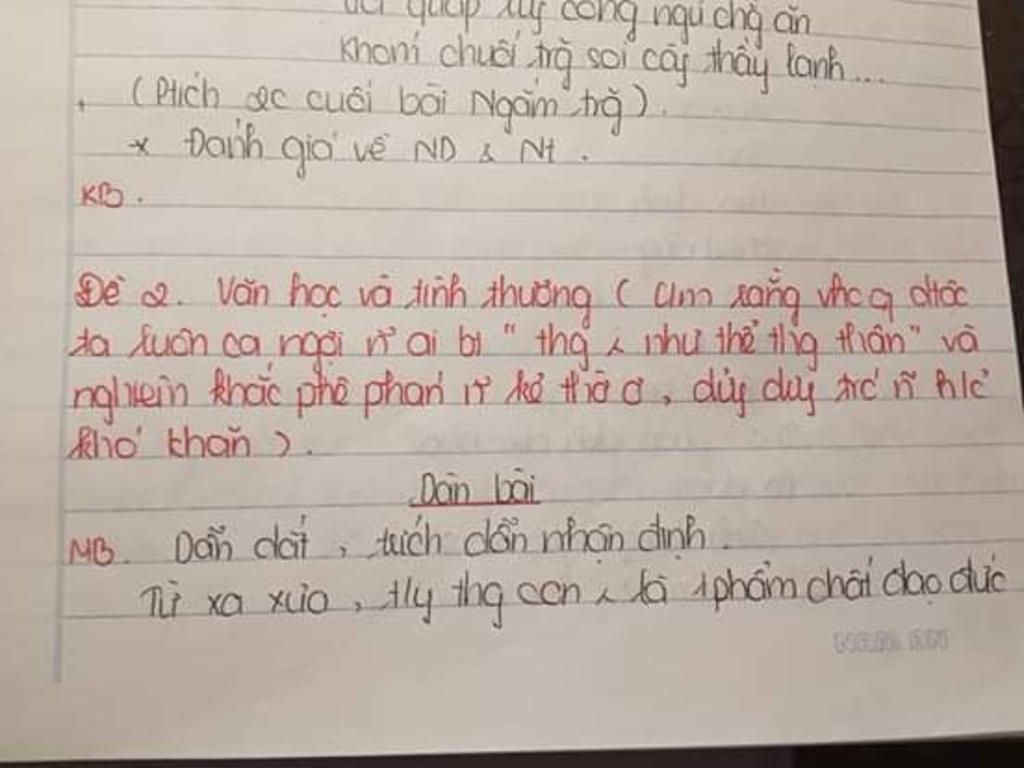 quáp xuý công ngủ chg ăn
Khom chuối trg soi cây thây lạnh...
(Ptích 2c cuối bài Ngắm trg).
* Đánh giá về ND & Nt.
KB.
Đề 2. Văn học và tình thương (Cm rằng vhc dtộc
ta luôn ca ngợi n~ ai bt "thg λ như thể thg thân" và
nghiêm khắc phê phán n~ kẻ thờ ơ, dửng trc n~
khó khăn).
Dàn bài
MB. Dẫn dắt, trích dẫn nhận định.
Từ xa xưa, tly thg con λ là 1 phẩm chất đạo đức